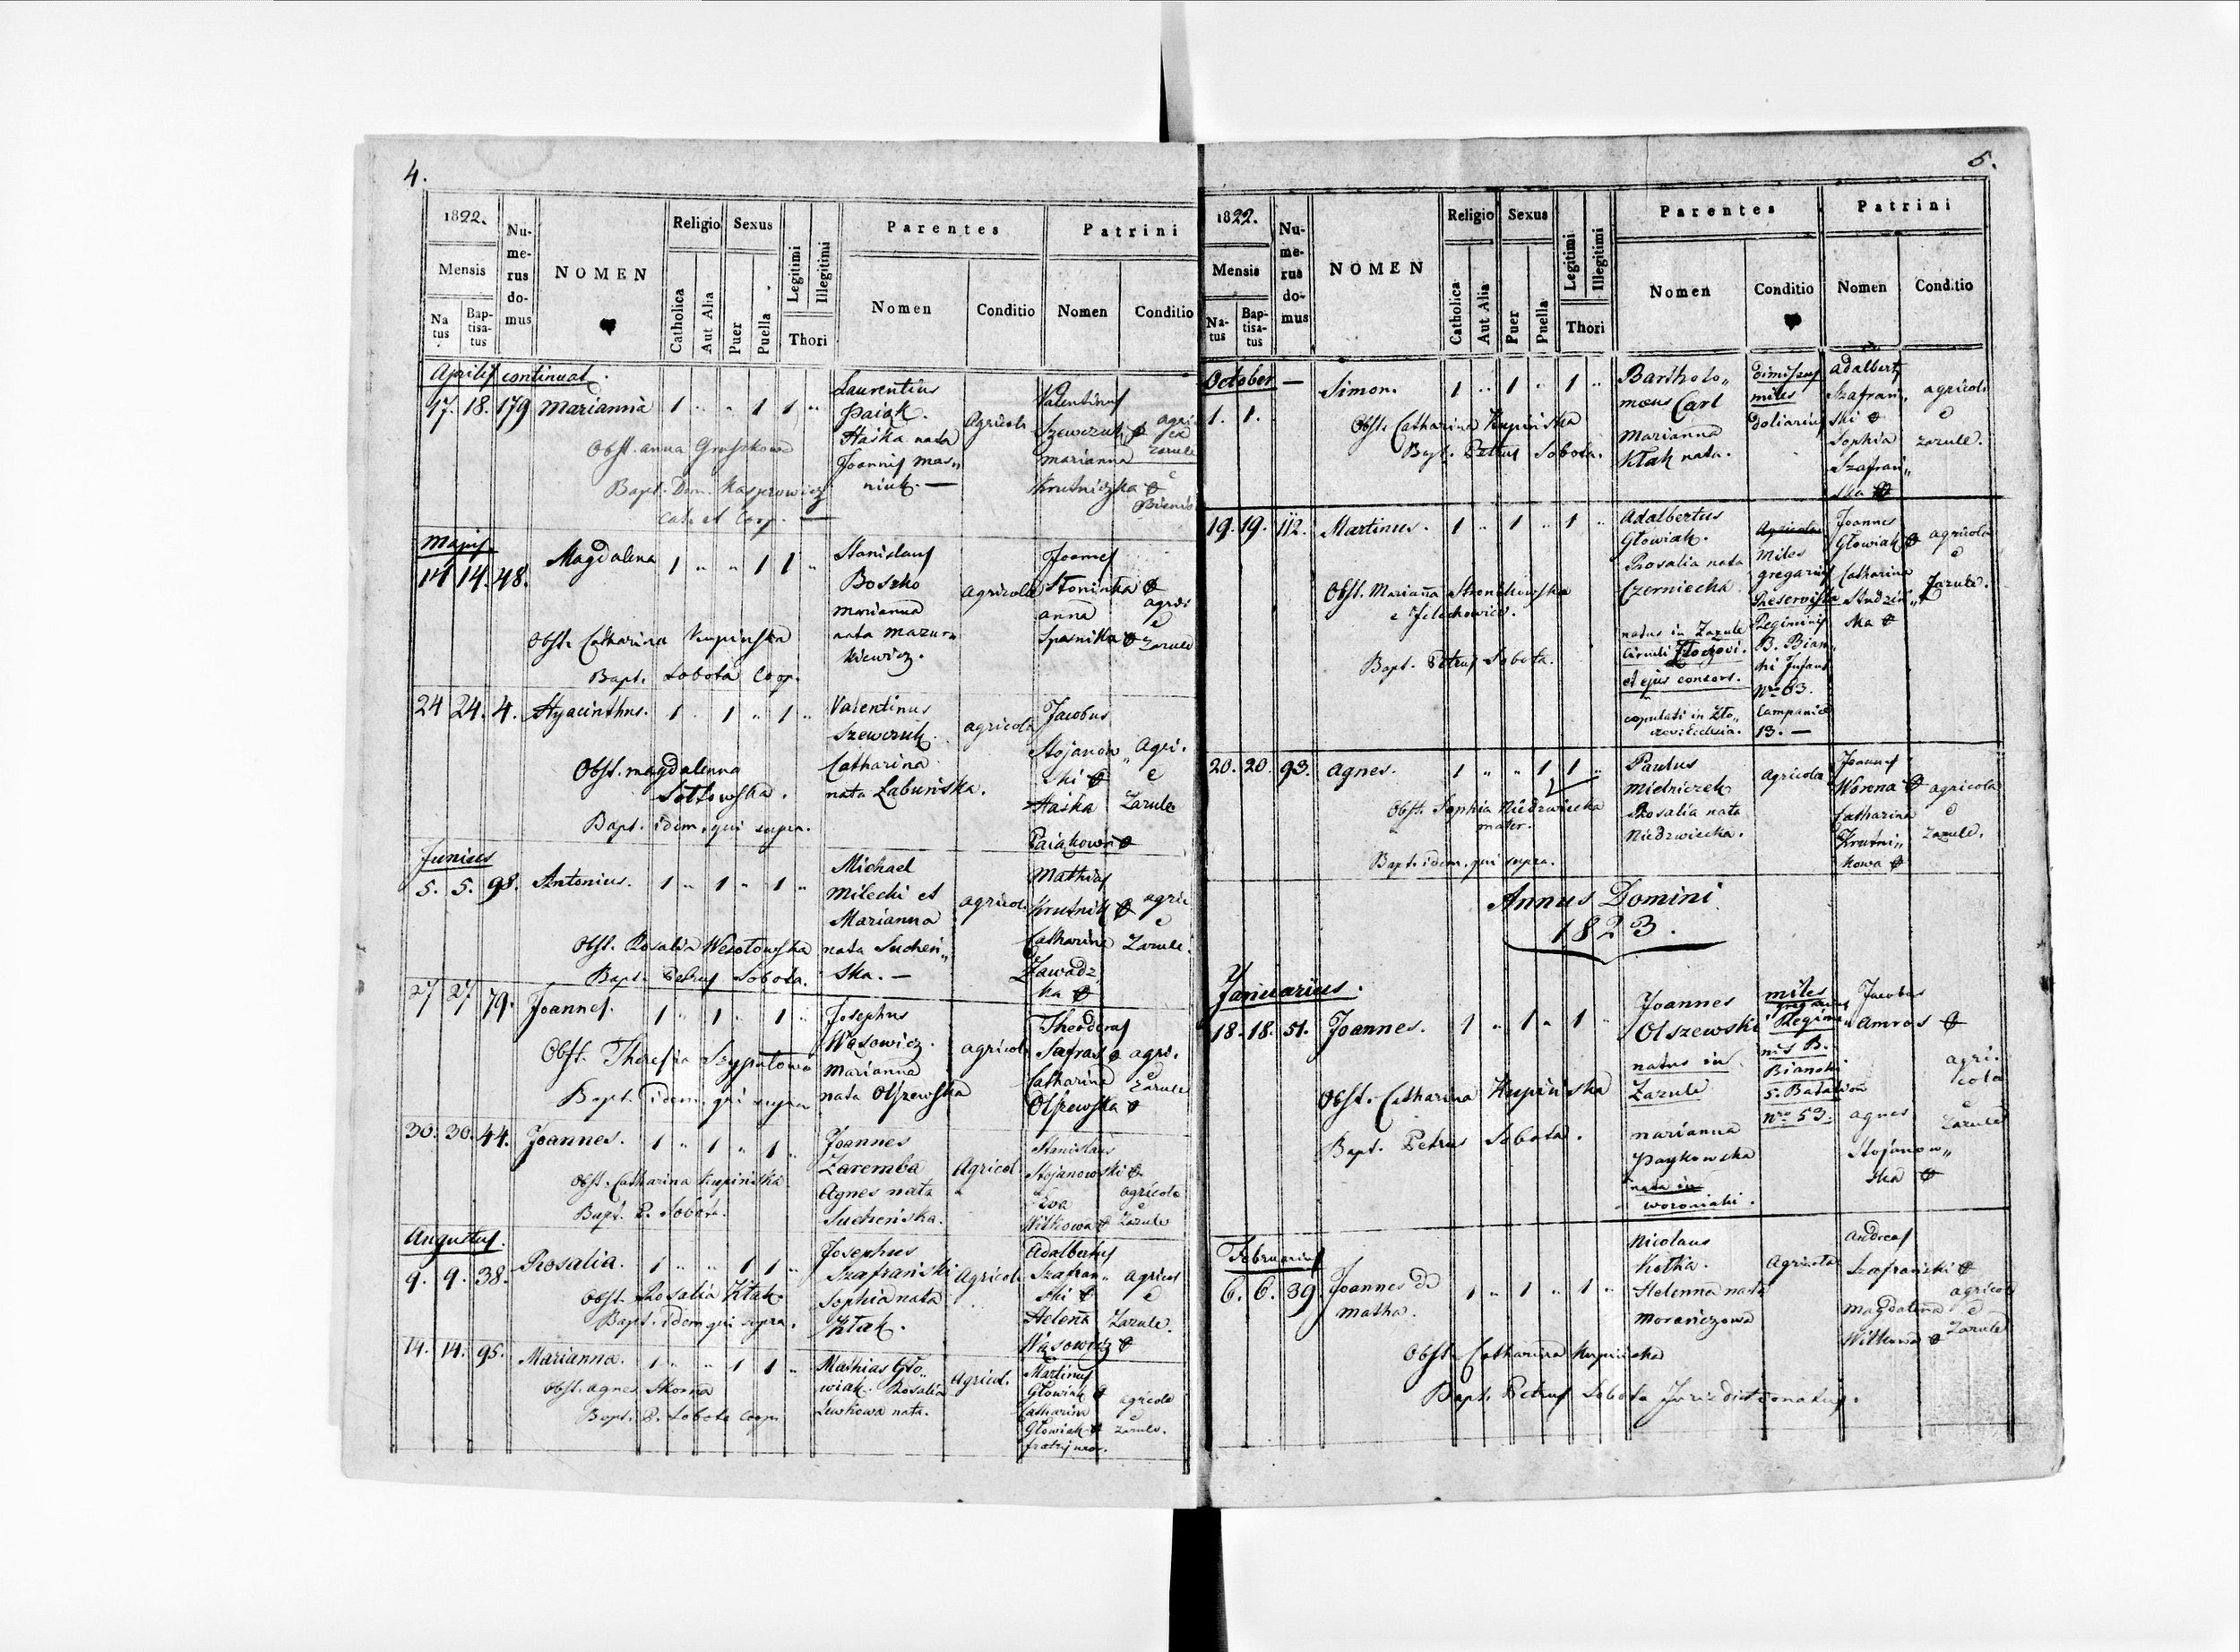 4.
1822.
Mensis
Na tus
Bap- tisa- tus
Nu- me- rus do- mus
NOMEN
Religio
Catholica
Aut Alia
Sexus
Puer
Puella
Legitimi
Illegitimi
Thori
Parentes
Nomen
Conditio
Patrini
Nomen
Conditio
Aprilis continuat.
17. 18. 179 Marianna 1 " " 1 1 "
Laurentius
Paiąk.
Haśka nata
Joannis Mas„
niuk. —
Agricola
Valentinus
Szewczuk
Marianna
Krutniczka
Obst. Anna Gruszkowa
Bapt. Dom. Kasprowicz
Cat. et Coop. —
Majus
14 14. 48. Magdalena 1 " " 1 1 "
Stanislaus
Boszko
Marianna
nata Mazur„
kiewicz.
agricola
Joannes
Słoninka
Anna
Spasnika
agric
e
Zarule
Obst. Catharina Kupińska
Bapt. Sobota Coop.
24 24. 4. Hyacinthus. 1 " 1 " 1 "
Valentinus
Szewczuk.
Catharina
nata Łabuńska.
agricola
Jacobus
Stojanow„
ski
Haśka
Paiąkowa
Agri.
e
Zarule
Obst. Magdalenna
Sołtowska.
Bapt. idem, qui supra.
Junius
5. 5. 98. Antonius. 1 " 1 " 1 "
Michael
Milecki et
Marianna
nata Suchen„
ska. —
agricol.
Mathias
Krutnik
Catharina
Zawadz„
ka
agric
e
Zarule.
Obst. Rosalia Wesołowska
Bapt. Petrus Sobota.
27 27 79. Joannes. 1 " 1 " 1 "
Josephus
Wąsowicz.
Marianna
nata Olszewska
agricol.
Theodorus
Safras
Catharina
Olszewska
agri.
e
Zarule
Obst. Theresia Szypułowa
Bapt. idem, qui supra
30. 30. 44. Joannes. 1 " 1 " 1 "
Joannes
Zaremba
Agnes nata
Sucheńska.
Agricol.
Stanislaus
Stojanowski
Eva
Witkowa
agricola
e
Zarule
Obst. Catharina Kupińska
Bapt. P. Sobota.
Augustus.
9. 9. 38. Rosalia. 1 " " 1 1 "
Josephus
Szafrański
Sophia nata
Kłak.
Agricola
Adalbertus
Szafran„
ski
Helena
Wąsowicz
agricol
e
Zarule.
Obst. Rosalia Kłak
Bapt. idem qui supra.
14. 14. 95. Marianna. 1 " " 1 1 "
Mathias Gło„
wiak. Rosalia
Lewkowa nata.
Agricol.
Martinus
Głowiak
Catharina
Głowiak
agricola
e
Zarule.
Obst. Agnes Skorna
Bapt. P. Sobota Coop.
5.
1822.
Mensis
Na- tus
Bap- tisa- tus
Nu- me- rus do- mus
NOMEN
Religio
Catholica
Aut Alia
Sexus
Puer
Puella
Legitimi
Illegitimi
Thori
Parentes
Nomen
Conditio
Patrini
Nomen
Conditio
October —
1. 1. Simon. 1 " 1 " 1 "
Bartholo„
mæus Carl
Marianna
Kłak nata.
dimissus
miles
doliarius
Adalbert,
Szafrań„
ski
Sophia
Szafrań„
ska
agricola
e
Zarule.
Obst. Catharina Kupińska
Bapt. Petrus Sobota.
19. 19. 112. Martinus. 1 " 1 " 1 "
Adalbertus
Głowiak.
Rosalia nata
Czerniecka
natus in Zarule
Circuli Złoczovi.
et ejus consors.
copulati in Zło„
Agricola
Miles
gregarius
Reservista
Regiminis
B. Bian„
ki Infant
Nro 63.
Campaniæ
13. —
Joannes
Głowiak
Catharina
Studziń„
ska
agricola
e
Zarule.
Obst. Marianna Stronikowska
e Jelechowice.
Bapt. Petrus Sobota.
20. 20. 93. Agnes. 1 " " 1 1 "
Paulus
Mielniczek
Rosalia nata
Niedzwiecka.
Agricola
Joannes
Worona
Catharina
Krutni„
kowa
agricola
e
Zarule.
Obst. Sophia Niedzwiecka
mater.
Bapt. idem, qui supra.
Annus Domini
1823.
Januarius.
18. 18. 51. Joannes. 1 " 1 " 1 "
Joannes
Olszewski
natus in
Zarule
Marianna
Paykowska
nata in
Woroniaki.
miles
gregarius
Regimi„
nis B.
Bianchi
5. Batalion
Nro 53.
Jacobus
Amros
Agnes
Stojanow„
ska
agri.
cola
e
Zarule
Obst. Catharina Kupińska
Bapt. Petrus Sobota.
Februarius
6. 6. 39. Joannes de
Matha. 1 " 1 " 1 "
Nicolaus
Kotka.
Helenna nata
Morańczowa
Agricola
Andreas
Szafrański
Magdalena
Witkowa
agricola
e
Zarule
Obst. Catharina Kupińska
Bapt. Petrus Sobota Jurisdictionatus.